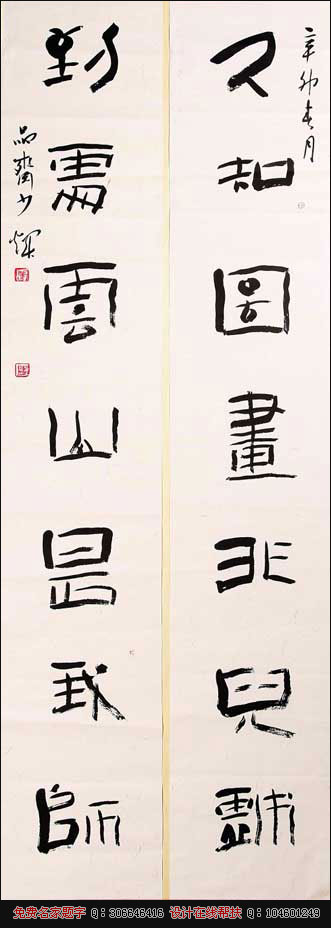 辛卯春月
久知圖畫非兒戲
到處雲山是我師
品齋少煇
免费名家题字 Q:306646416 设计在线帮扶 Q:104601249